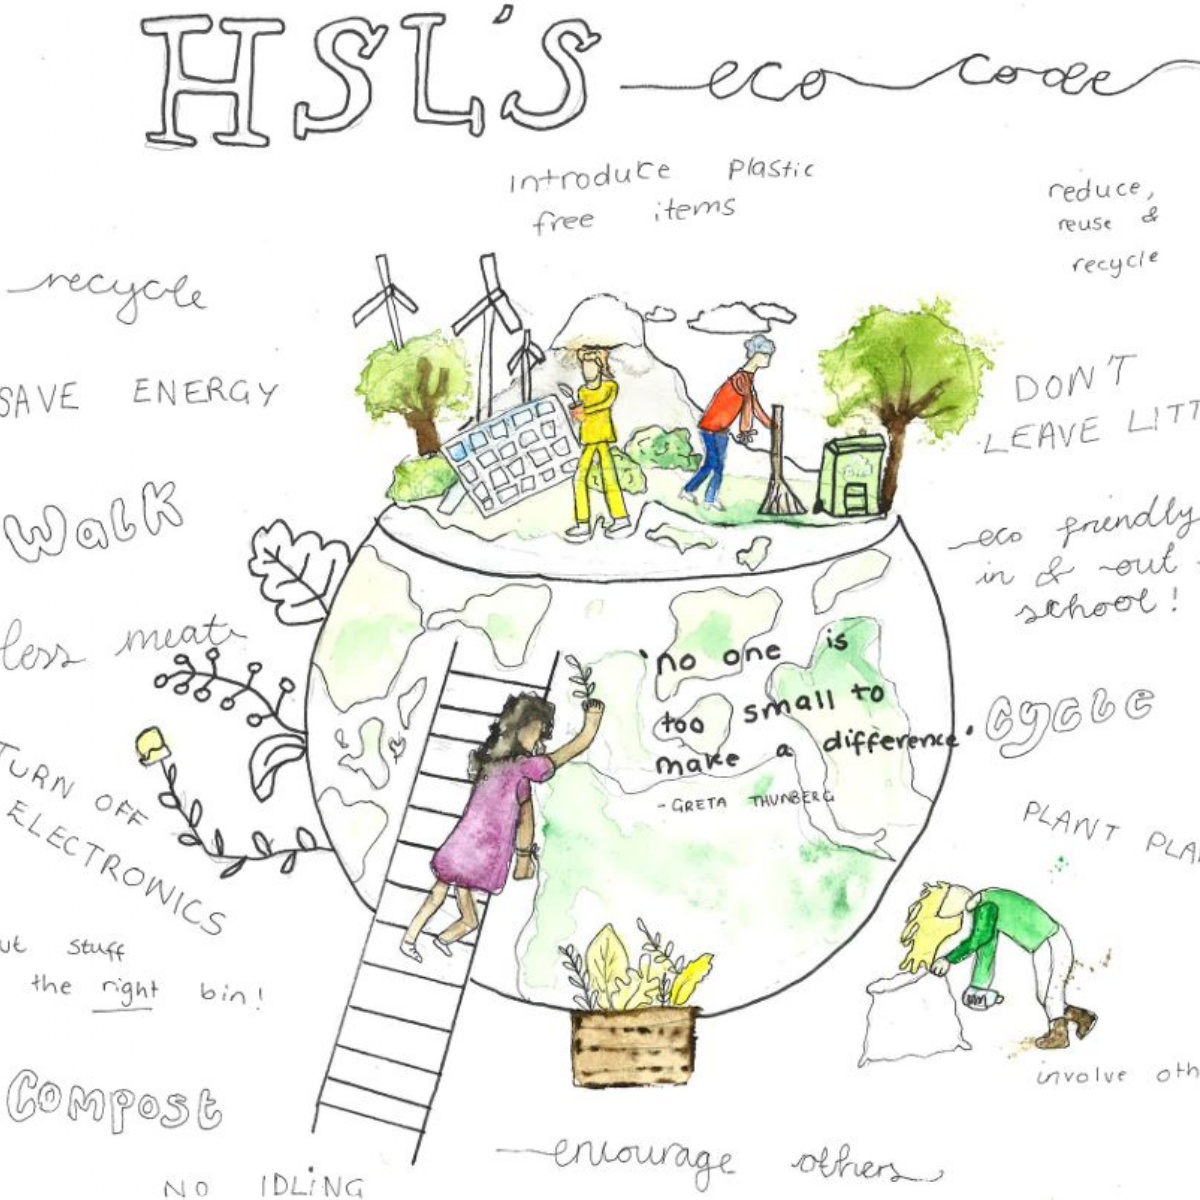 HSL'S eco code
introduce plastic
free items
reduce,
reuse &
recycle
recycle
SAVE ENERGY
DON'T
LEAVE LITT
Walk
eco friendly
in & out
school!
less meat
'no one is
too small to
make a difference'
- GRETA THUNBERG
cycle
TURN OFF
ELECTRONICS
PLANT PLA
ut stuff
the right bin!
involve oth
COMPOST
encourage others
NO IDLING